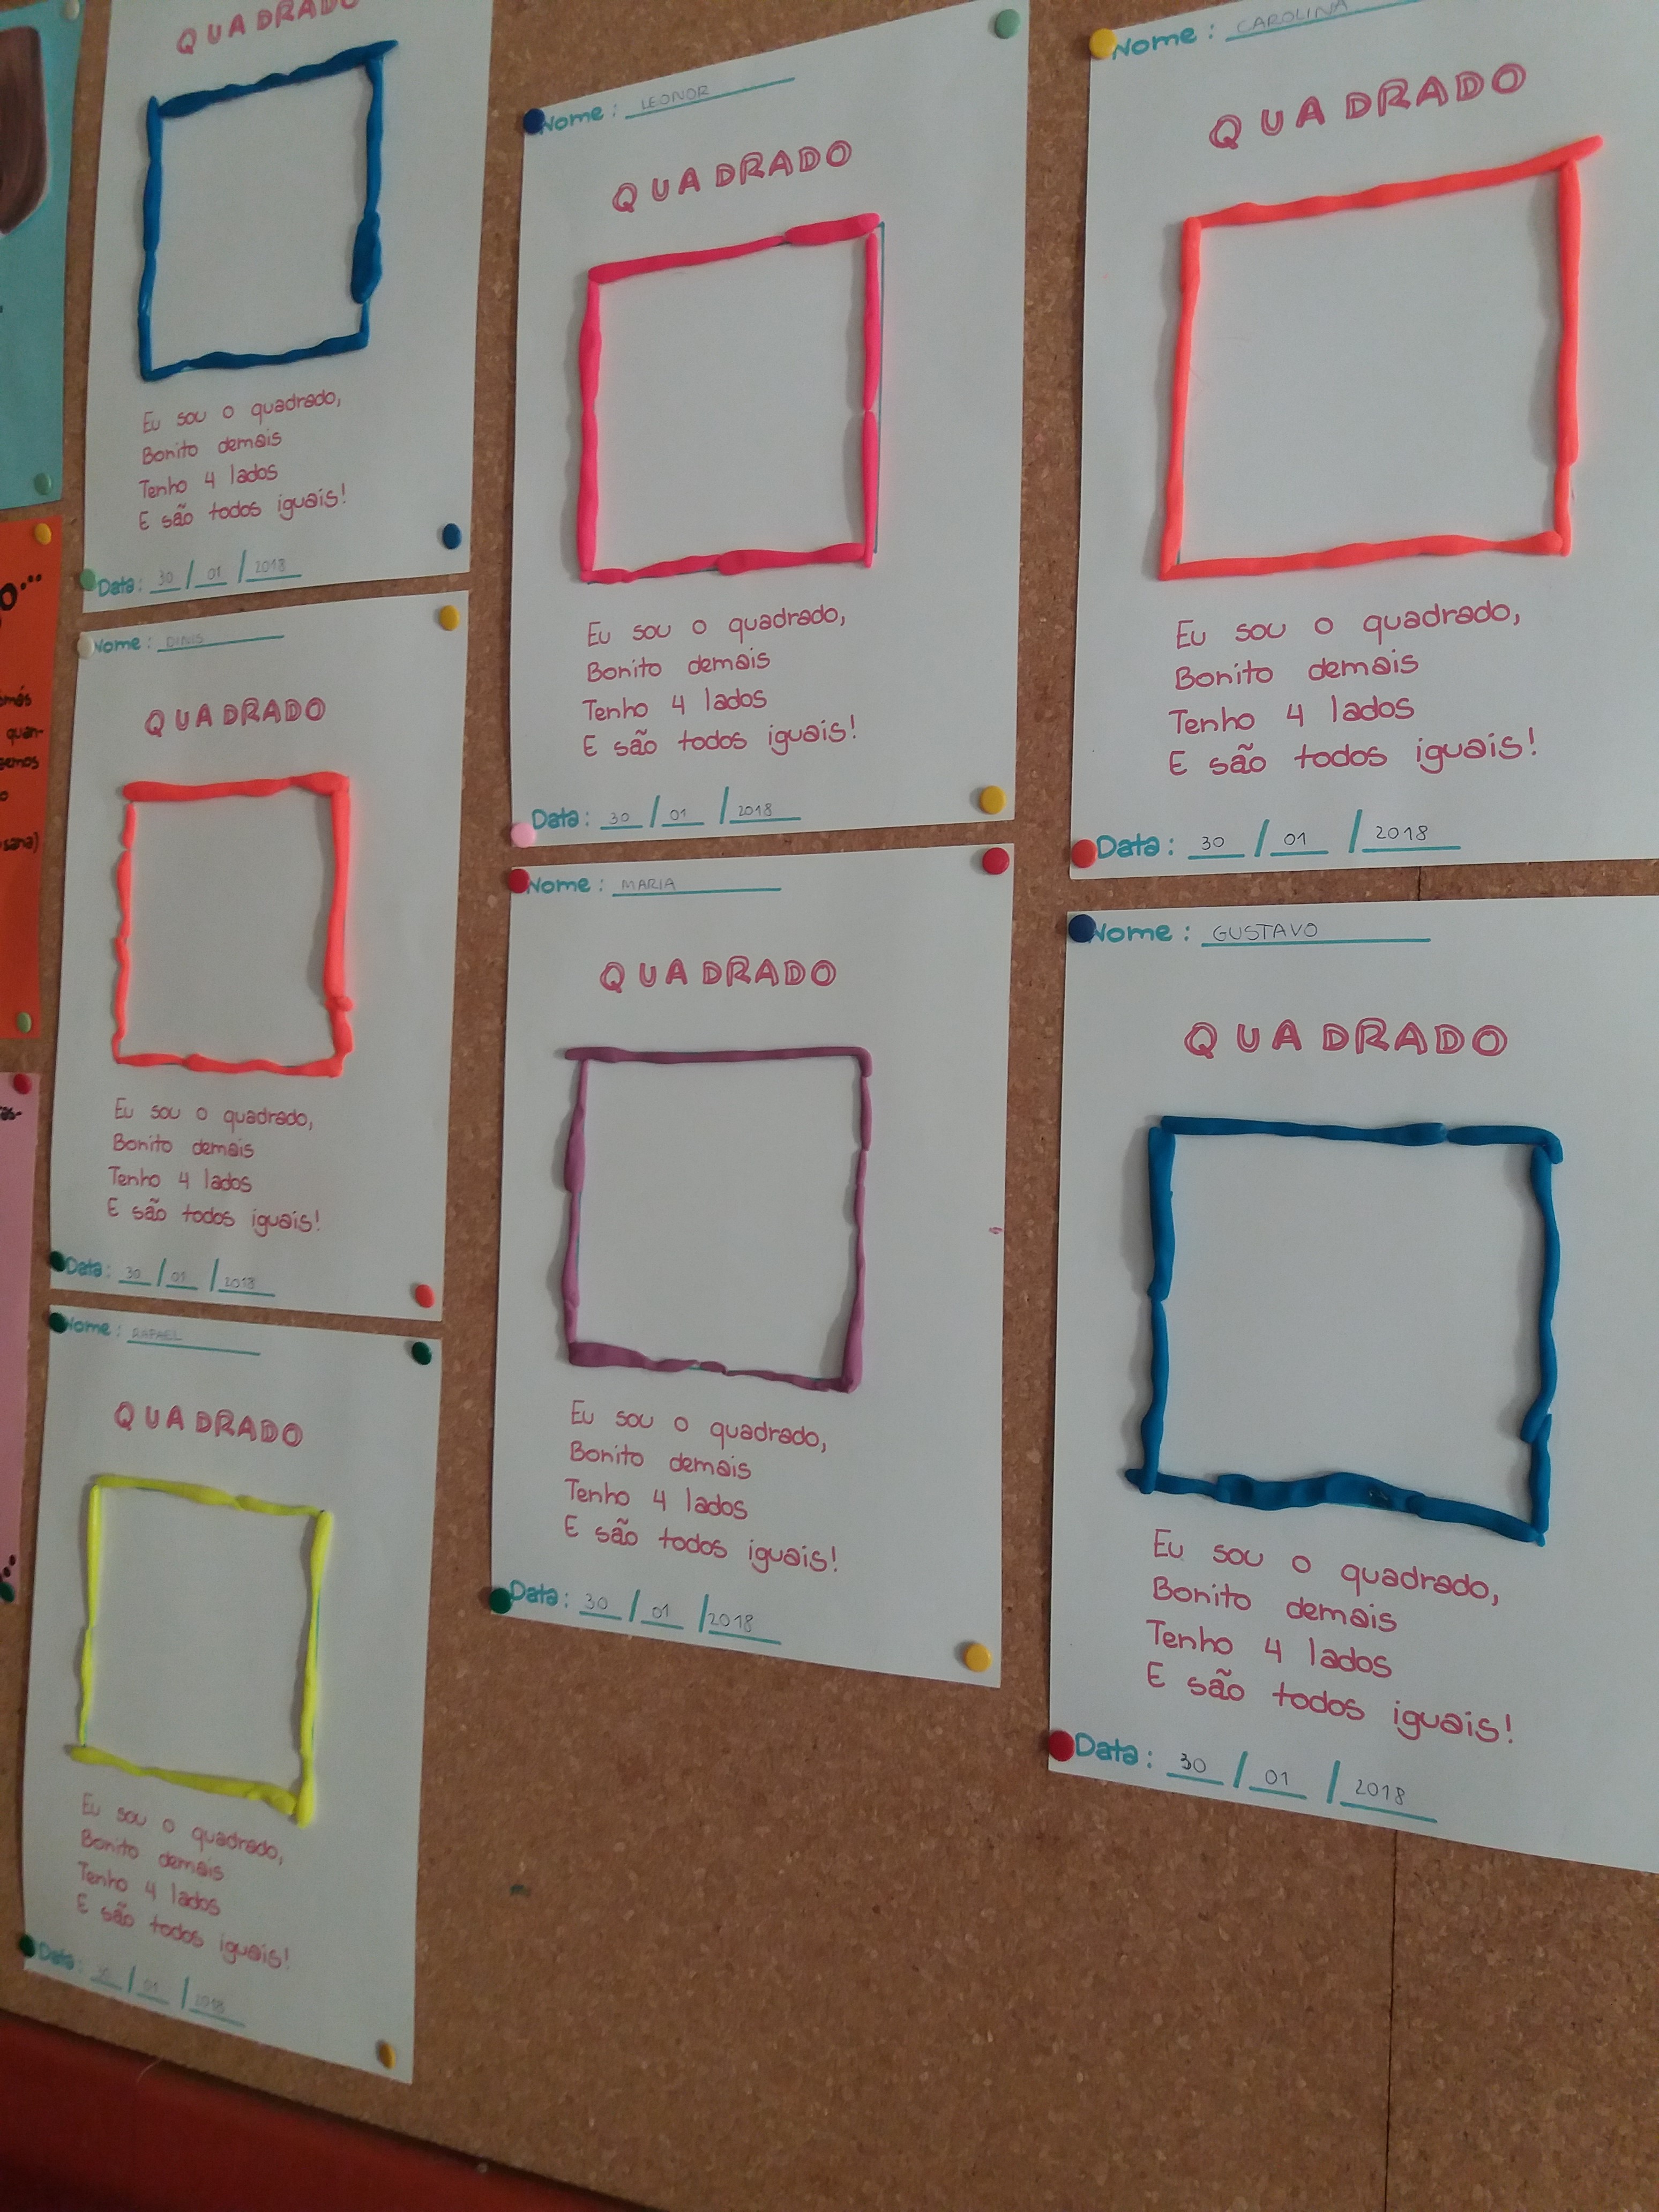 QUADRADO
Eu sou o quadrado,
Bonito demais
Tenho 4 lados
E são todos iguais!
Data: 30 / 01 / 2018
Nome: DINIS
QUADRADO
Eu sou o quadrado,
Bonito demais
Tenho 4 lados
E são todos iguais!
Data: 30 / 01 / 2018
Nome: RAFAEL
QUADRADO
Eu sou o quadrado,
Bonito demais
Tenho 4 lados
E são todos iguais!
Data: 30 / 01 / 2018
Nome: LEONOR
QUADRADO
Eu sou o quadrado,
Bonito demais
Tenho 4 lados
E são todos iguais!
Data: 30 / 01 / 2018
Nome: MARIA
QUADRADO
Eu sou o quadrado,
Bonito demais
Tenho 4 lados
E são todos iguais!
Data: 30 / 01 / 2018
Nome: CAROLINA
QUADRADO
Eu sou o quadrado,
Bonito demais
Tenho 4 lados
E são todos iguais!
Data: 30 / 01 / 2018
Nome: GUSTAVO
QUADRADO
Eu sou o quadrado,
Bonito demais
Tenho 4 lados
E são todos iguais!
Data: 30 / 01 / 2018